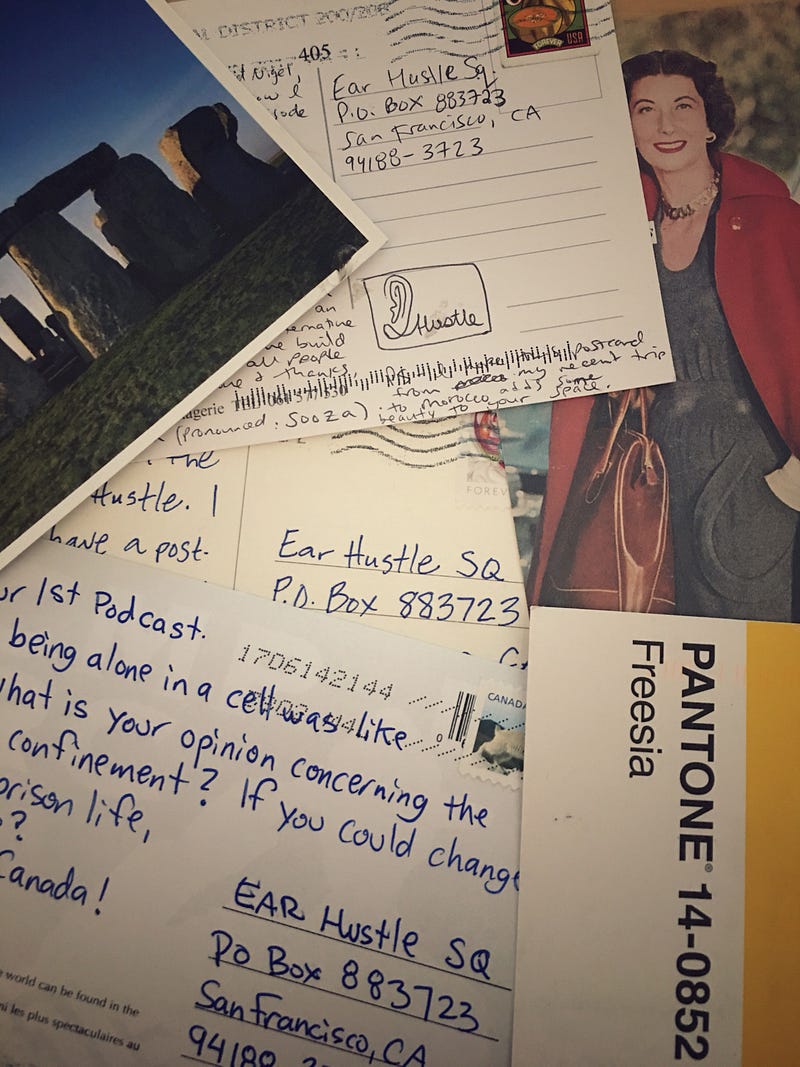 L DISTRICT 200/208
405
Nigel,
Ear Hustle Sq.
P.O. Box 883723
San Francisco, CA
94188-3723
FOREVER USA
Hustle
an
build
all people
& thanks,
postcard
from my recent trip
to Morocco adds some
beauty to your space.
(pronounced: Sooza)
The
Hustle. I
have a post-
FOREV
Ear Hustle SQ
P.O. Box 883723
1st Podcast.
being alone in a cell was like
what is your opinion concerning the
confinement? If you could change
prison life,
?
Canada!
1706142144
CANADA
EAR Hustle SQ
PO Box 883723
San Francisco, CA
94188
world can be found in the
les plus spectaculaires au
PANTONE® 14-0852
Freesia